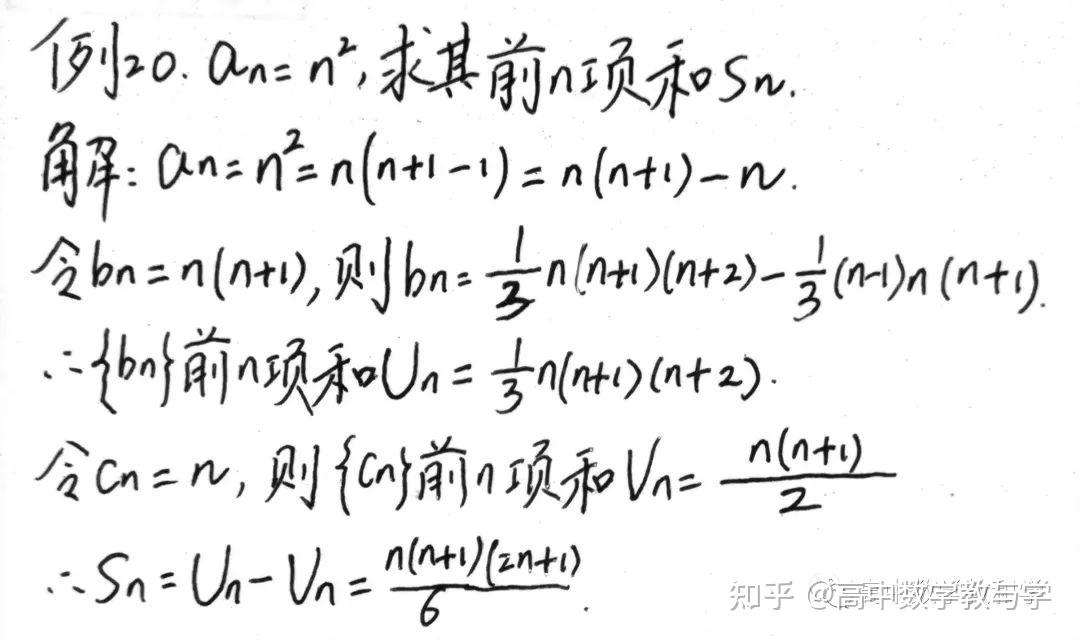 例20. an=n²,求其前n项和Sn.
解: an=n²=n(n+1-1)=n(n+1)-n.
令bn=n(n+1),则bn=\frac{1}{3}n(n+1)(n+2)-\frac{1}{3}(n-1)n(n+1).
∴{bn}前n项和Un=\frac{1}{3}n(n+1)(n+2).
令Cn=n,则{Cn}前n项和Vn=\frac{n(n+1)}{2}
∴Sn=Un-Vn=\frac{n(n+1)(2n+1)}{6}.
知乎 @高中数学教与学